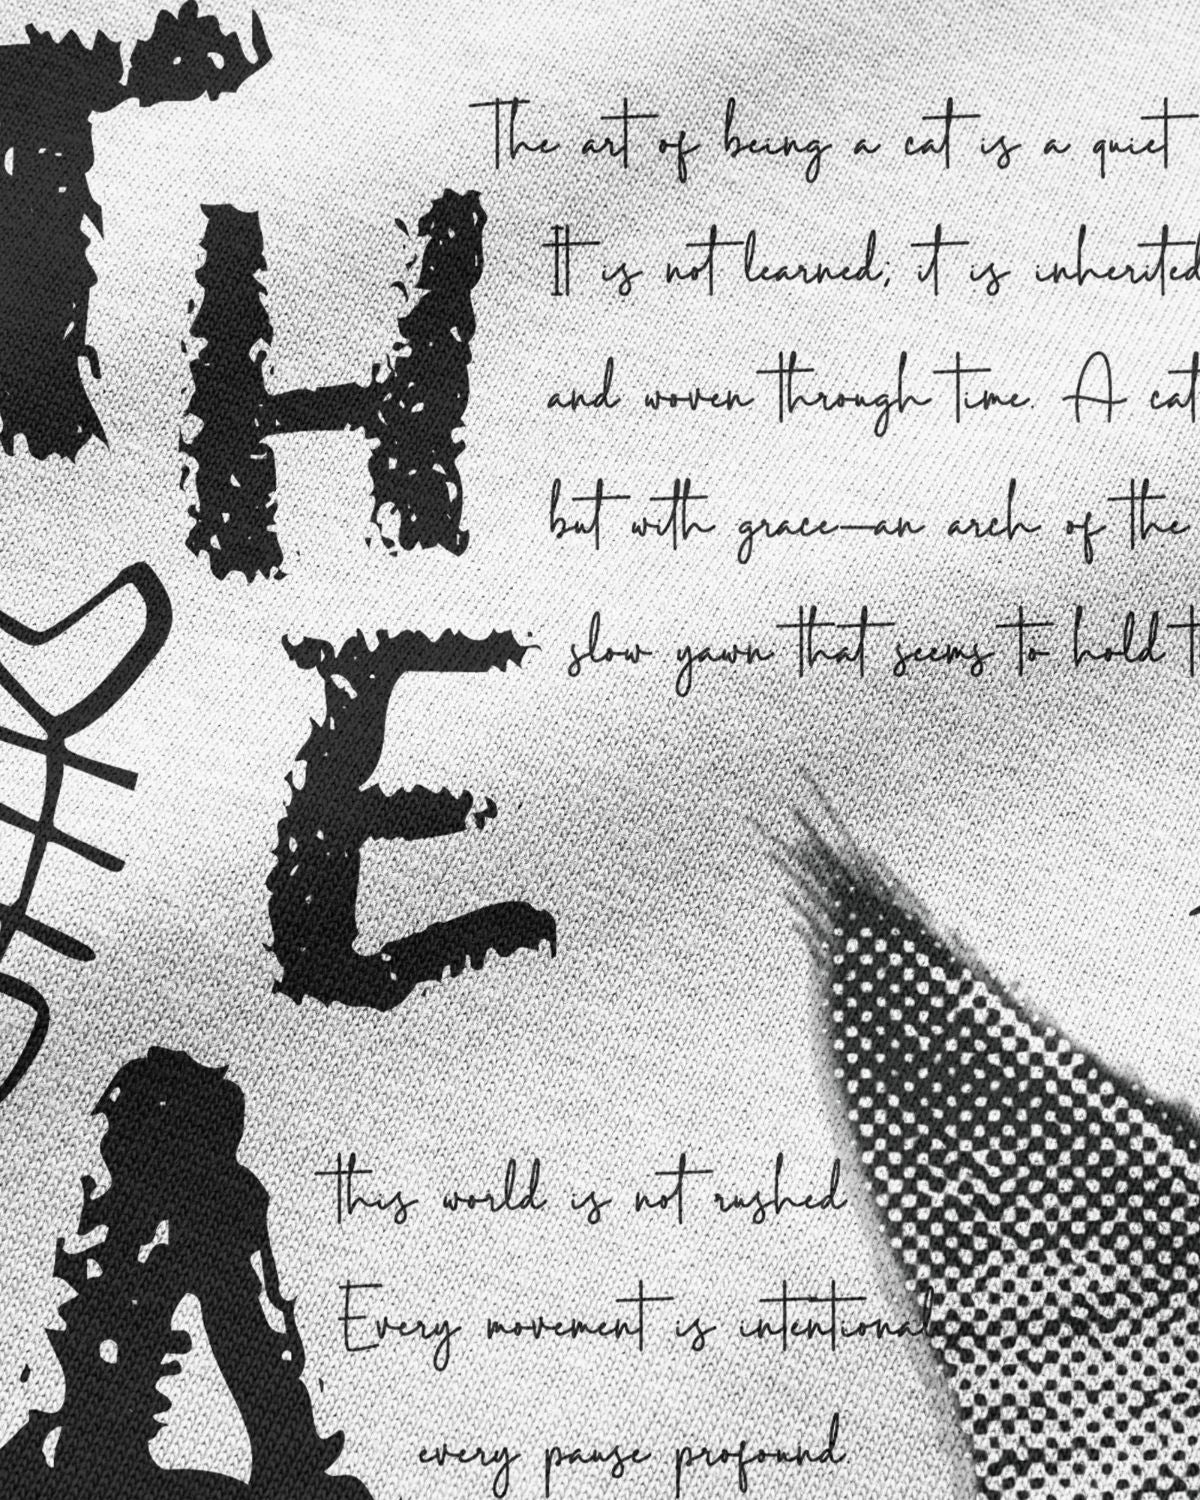 THE
The art of being a cat is a quiet
It is not learned; it is inherited
and woven through time. A cat
but with grace—an arch of the
slow yawn that seems to hold
A
this world is not rushed
Every movement is intentional
every pause profound